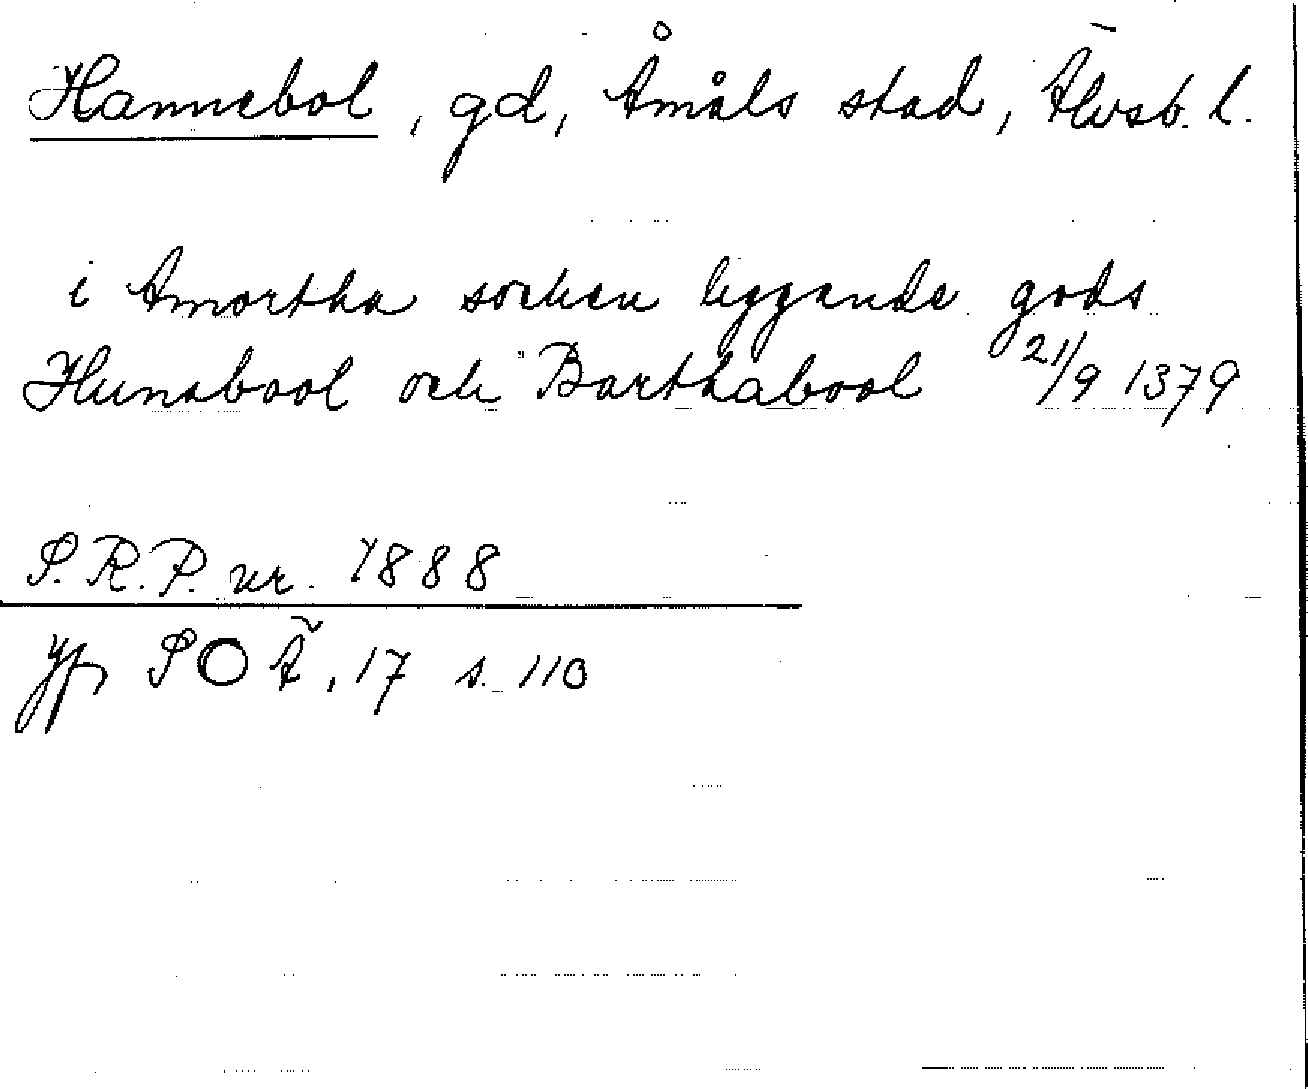 Hannebol, gd, Åmåls stad, Älvsb. l.
i Amortha socken leggende gods
Hunabool och Barthabool 21/9 1379
S.R.P. nr. 1888
Jfr SOÄ, 17 s. 110